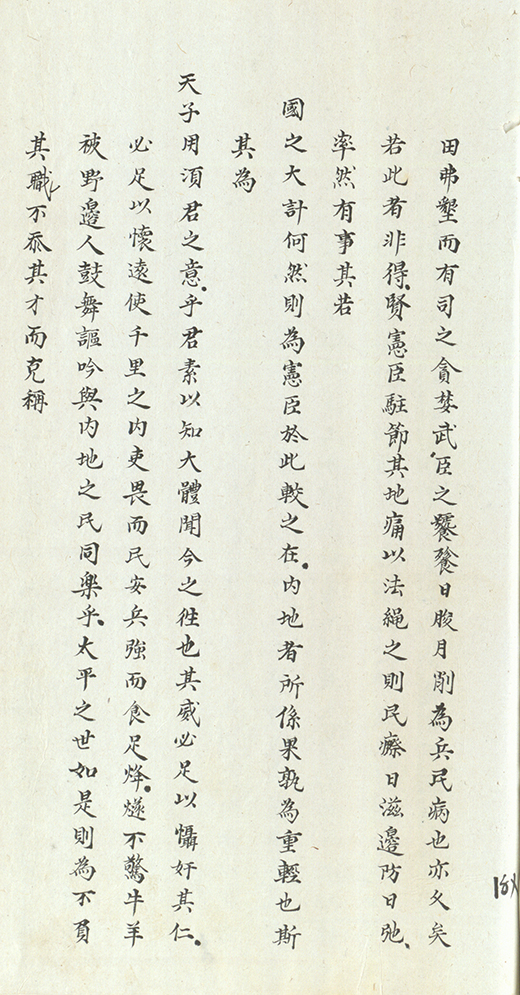 田弗墾而有司之貪婪武臣之饕餮日朘月削為兵民病也亦久矣
若此者非得賢憲臣駐節其地痛以法䋲之則民瘵日滋邊防日弛、
率然有事其若
國之大計何然則為憲臣於此較之在内地者所係果孰為重輕也斯
其為
天子用湏君之意乎君素以知大體聞今之徃也其威必足以懾奸其仁
必足以懷遠使千里之内吏畏而民安兵強而食足烽燧不驚牛羊
被野邊人鼓舞謳吟與内地之民同樂乎太平之世如是則為不負
其職不忝其才而克稱